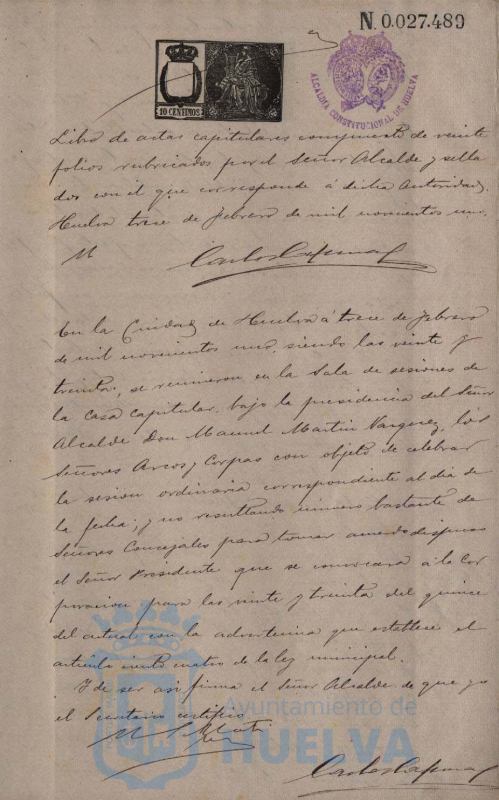 N. 0.027.489
10 CENTIMOS
ALCALDIA CONSTITUCIONAL DE HUELVA
Libro de actas capitulares compuesto de veinte
folios rubricados por el Señor Alcalde y sella
dos con el que corresponde á dicha autoridad.
Huelva trece de febrero de mil novecientos uno.
M
En la Ciudad de Huelva á trece de febrero
de mil novecientos uno, siendo las veinte y
treinta, se reunieron en la Sala de sesiones de
la Casa Capitular, bajo la presidencia del Señor
Alcalde Don Manuel Martin Vazquez, los
Señores Arcos y Corpas con objeto de celebrar
la sesion ordinaria correspondiente al dia de
la fecha; y no resultando número bastante de
Señores Concejales para tomar acuerdo dispuso
el Señor Presidente que se convocara á la Cor
poracion para las veinte y treinta del quince
del actual con la advertencia que establece el
articulo ciento cuatro de la ley municipal.
Y de ser asi firma el Señor Alcalde de que yo
el Secretario certifico
Ayuntamiento de
HUELVA